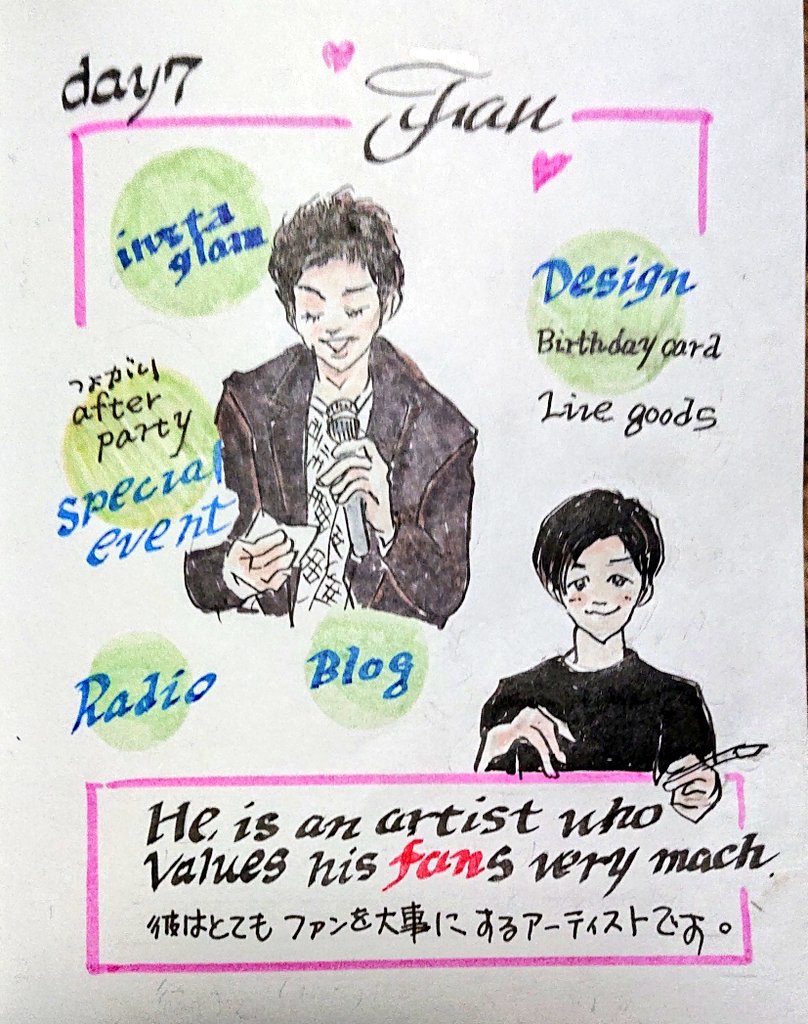 day7
Fan
insta
glam
Design
Birthday card
Live goods
つながり
after
party
special
event
Radio
Blog
He is an artist who
values his fans very mach.
彼はとても ファンを大事に するアーティストです。